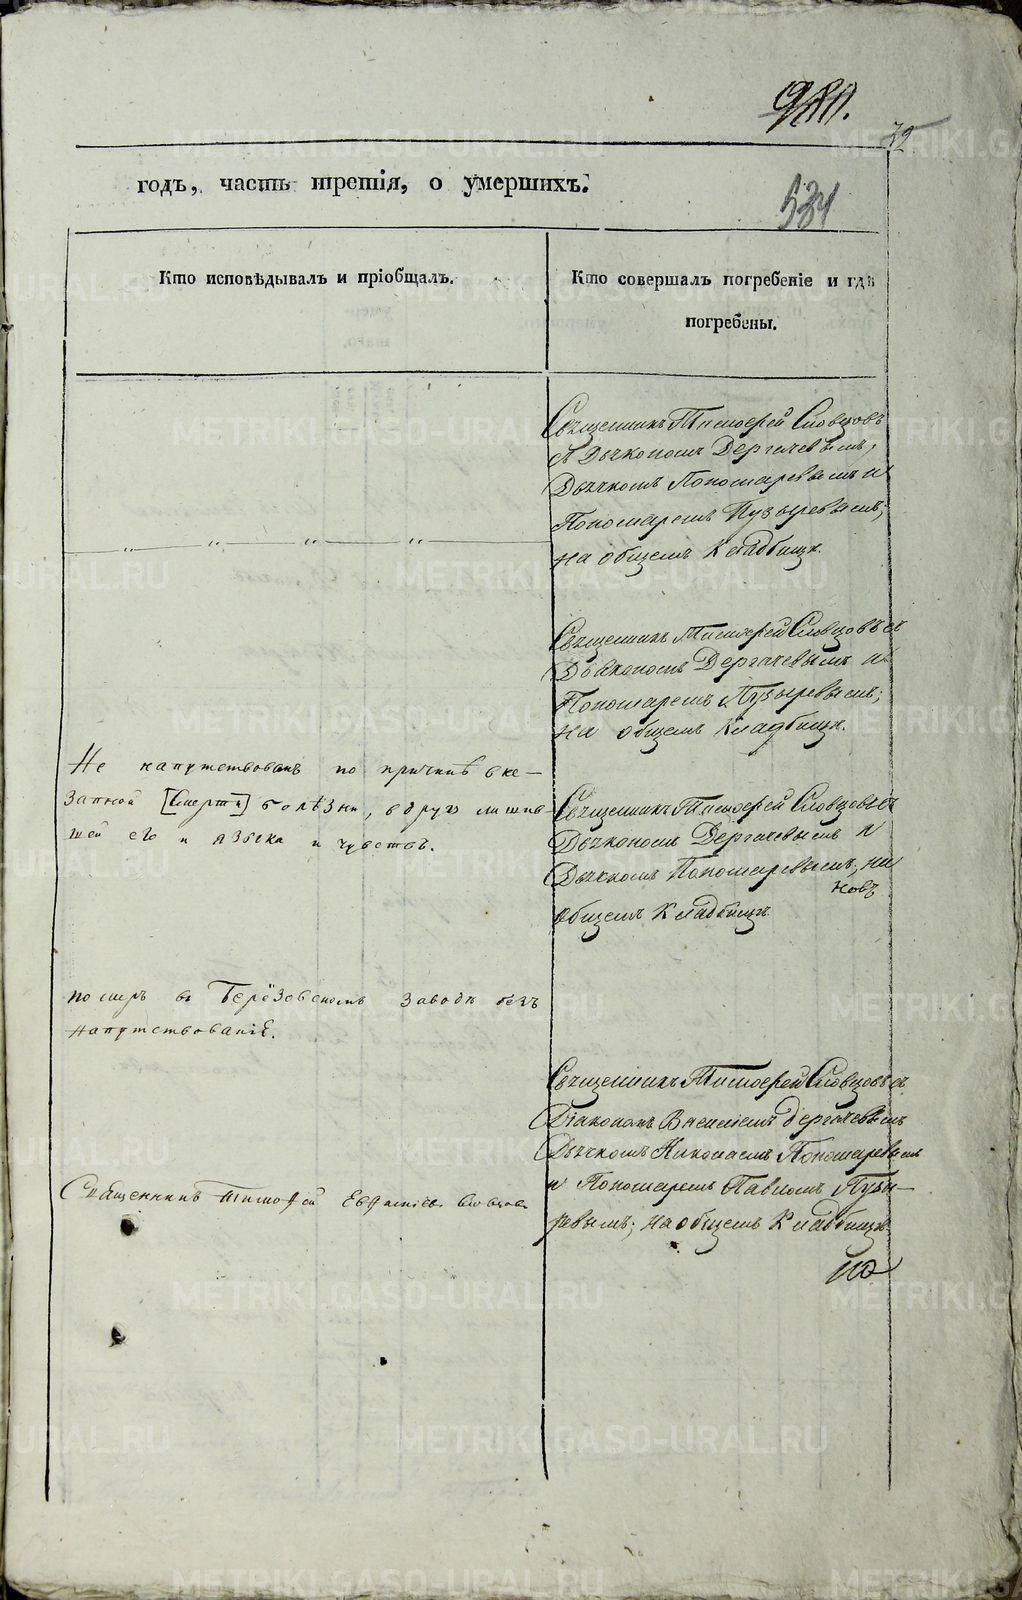 980.
32
534
годъ, часть третія, о умершихъ.
Кто исповѣдывалъ и пріобщалъ.
Кто совершалъ погребеніе и гдѣ
погребены.
Священникъ Тимоѳей Словцовъ
с Дьякономъ Дергачевымъ,
Дьячкомъ Пономаревымъ и
Пономаремъ Пузыревымъ;
на общемъ Кладбищѣ.
Священникъ Тимоѳей Словцовъ съ
Дьякономъ Дергачевымъ и
Пономаремъ Пузыревымъ;
на общемъ Кладбищѣ.
Не напутствованъ по причинѣ вне-
запной [Смерти] болѣзни, вдругъ лишив-
шей его и языка и чувствъ.
Священникъ Тимоѳей Словцовъ съ
Дьякономъ Дергачевымъ и
Дьячкомъ Пономаревымъ, на
новъ
общемъ Кладбищѣ
померъ въ Берёзовскомъ заводѣ безъ
напутствованія.
Священникъ Тимоѳей Словцовъ съ
Діакономъ Василіемъ Дергачевымъ
Дьячкомъ Николаемъ Пономаревымъ
и Пономаремъ Павломъ Пузы-
ревымъ; на общемъ Кладбищѣ.
Священникъ Тимофей Евфиміевъ Словцовъ
METRIKI.GASO-URAL.RU